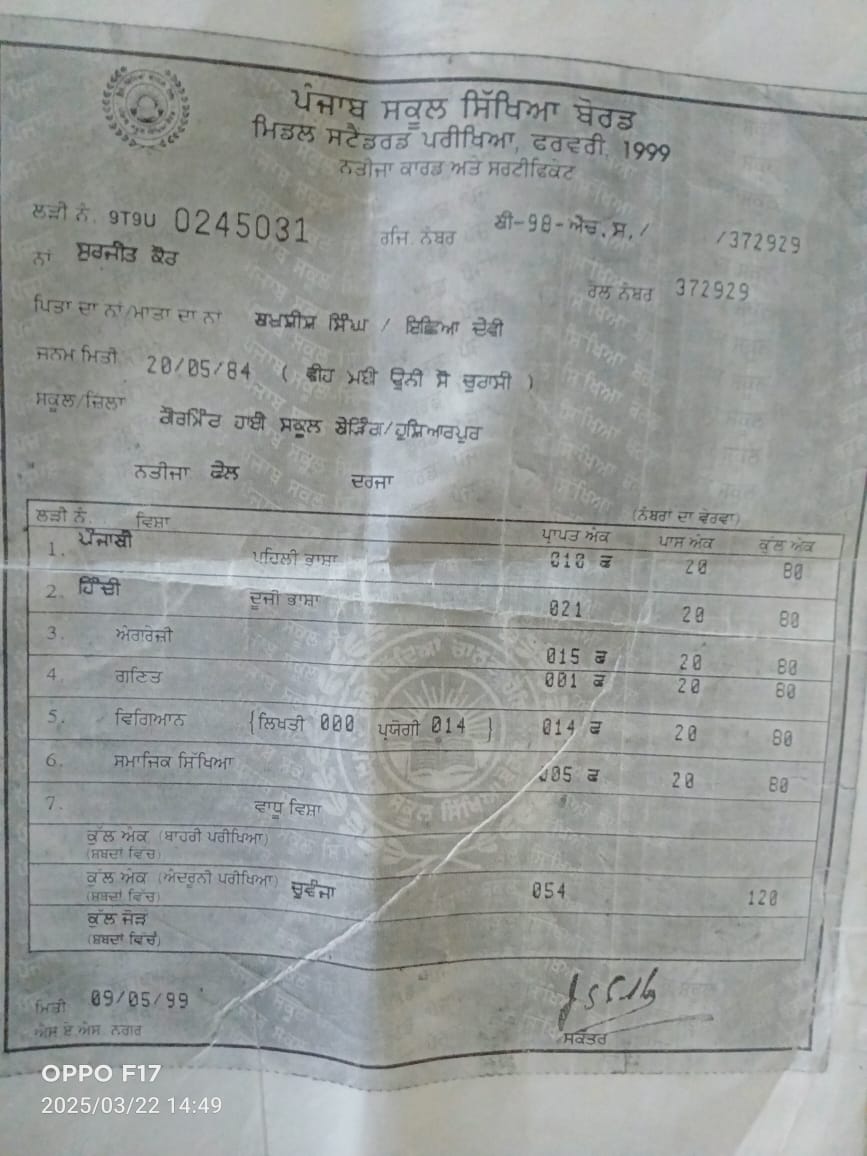 ਪੰਜਾਬ ਸਕੂਲ ਸਿੱਖਿਆ ਬੋਰਡ
ਮਿਡਲ ਸਟੈਡਰਡ ਪਰੀਖਿਆ, ਫਰਵਰੀ, 1999
ਨਤੀਜਾ ਕਾਰਡ ਅਤੇ ਸਰਟੀਫਿਕੇਟ
ਲੜੀ ਨੰ. 9T9U 0245031 ਰਜਿ. ਨੰਬਰ ਬੀ-98-ਐਚ.ਸ./ /372929
ਨਾਂ ਸੁਰਜੀਤ ਕੌਰ ਰੋਲ ਨੰਬਰ 372929
ਪਿਤਾ ਦਾ ਨਾਂ/ਮਾਤਾ ਦਾ ਨਾਂ ਬਖਸ਼ੀਸ਼ ਸਿੰਘ / ਦੇਵੀ
ਜਨਮ ਮਿਤੀ 20/05/84 ( ਵੀਹ ਮਈ ਉਨੀ ਸੌ ਚੁਰਾਸੀ )
ਸਕੂਲ/ਜ਼ਿਲਾ ਗੌਰਮਿੰਟ ਹਾਈ ਸਕੂਲ /ਹੁਸ਼ਿਆਰਪੁਰ
ਨਤੀਜਾ ਫੇਲ ਦਰਜਾ
(ਨੰਬਰਾਂ ਦਾ ਵੇਰਵਾ)
ਲੜੀ ਨੰ. ਵਿਸ਼ਾ ਪ੍ਰਾਪਤ ਅੰਕ ਪਾਸ ਅੰਕ ਕੁੱਲ ਅੰਕ
1. ਪੰਜਾਬੀ ਪਹਿਲੀ ਭਾਸ਼ਾ 20 80
2. ਹਿੰਦੀ ਦੂਜੀ ਭਾਸ਼ਾ 021 20 80
3. ਅੰਗਰੇਜ਼ੀ 015 ਫ 20 80
4. ਗਣਿਤ 001 ਫ 20 80
5. ਵਿਗਿਆਨ {ਲਿਖਤੀ 000 ਪ੍ਰਯੋਗੀ 014 } 014 ਫ 20 80
6. ਸਮਾਜਿਕ ਸਿੱਖਿਆ 005 ਫ 20 80
7. ਵਾਧੂ ਵਿਸ਼ਾ
ਕੁੱਲ ਅੰਕ (ਬਾਹਰੀ ਪਰੀਖਿਆ)
(ਸ਼ਬਦਾਂ ਵਿੱਚ)
ਕੁੱਲ ਅੰਕ (ਅੰਦਰੂਨੀ ਪਰੀਖਿਆ) ਚੁਵੰਜਾ 054 120
(ਸ਼ਬਦਾਂ ਵਿੱਚ)
ਕੁੱਲ ਜੋੜ
(ਸ਼ਬਦਾਂ ਵਿੱਚ)
ਮਿਤੀ 09/05/99
ਐਸ.ਏ.ਐਸ. ਨਗਰ
ਸਕੱਤਰ
OPPO F17
2025/03/22 14:49